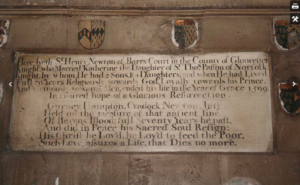 Here lyeth Sr. Henry Newton of Barrs Court in the County of Gloucester
Knight who Married Katherine the Daughter of Sr. Tho. Paston of Norfolk
Knight by whom He had 2 Sons & 4 Daughters, and when He had Lived
Full 70 Years Religiously towards God, Loyally towards his Prince,
and Men, ended his life in the Year of Grace 1599
In Assured hope of a Glorious Resurrection
Gurney Hampton, Cradock Newton last
Held on the measure of that antient line
Of Barons Blood: full Seventy Years he past,
And did in Peace his Sacred Soul Resign:
His Church he Lov'd; he Lov'd to feed the Poor,
Such Love assures a Life, that Dies no more.